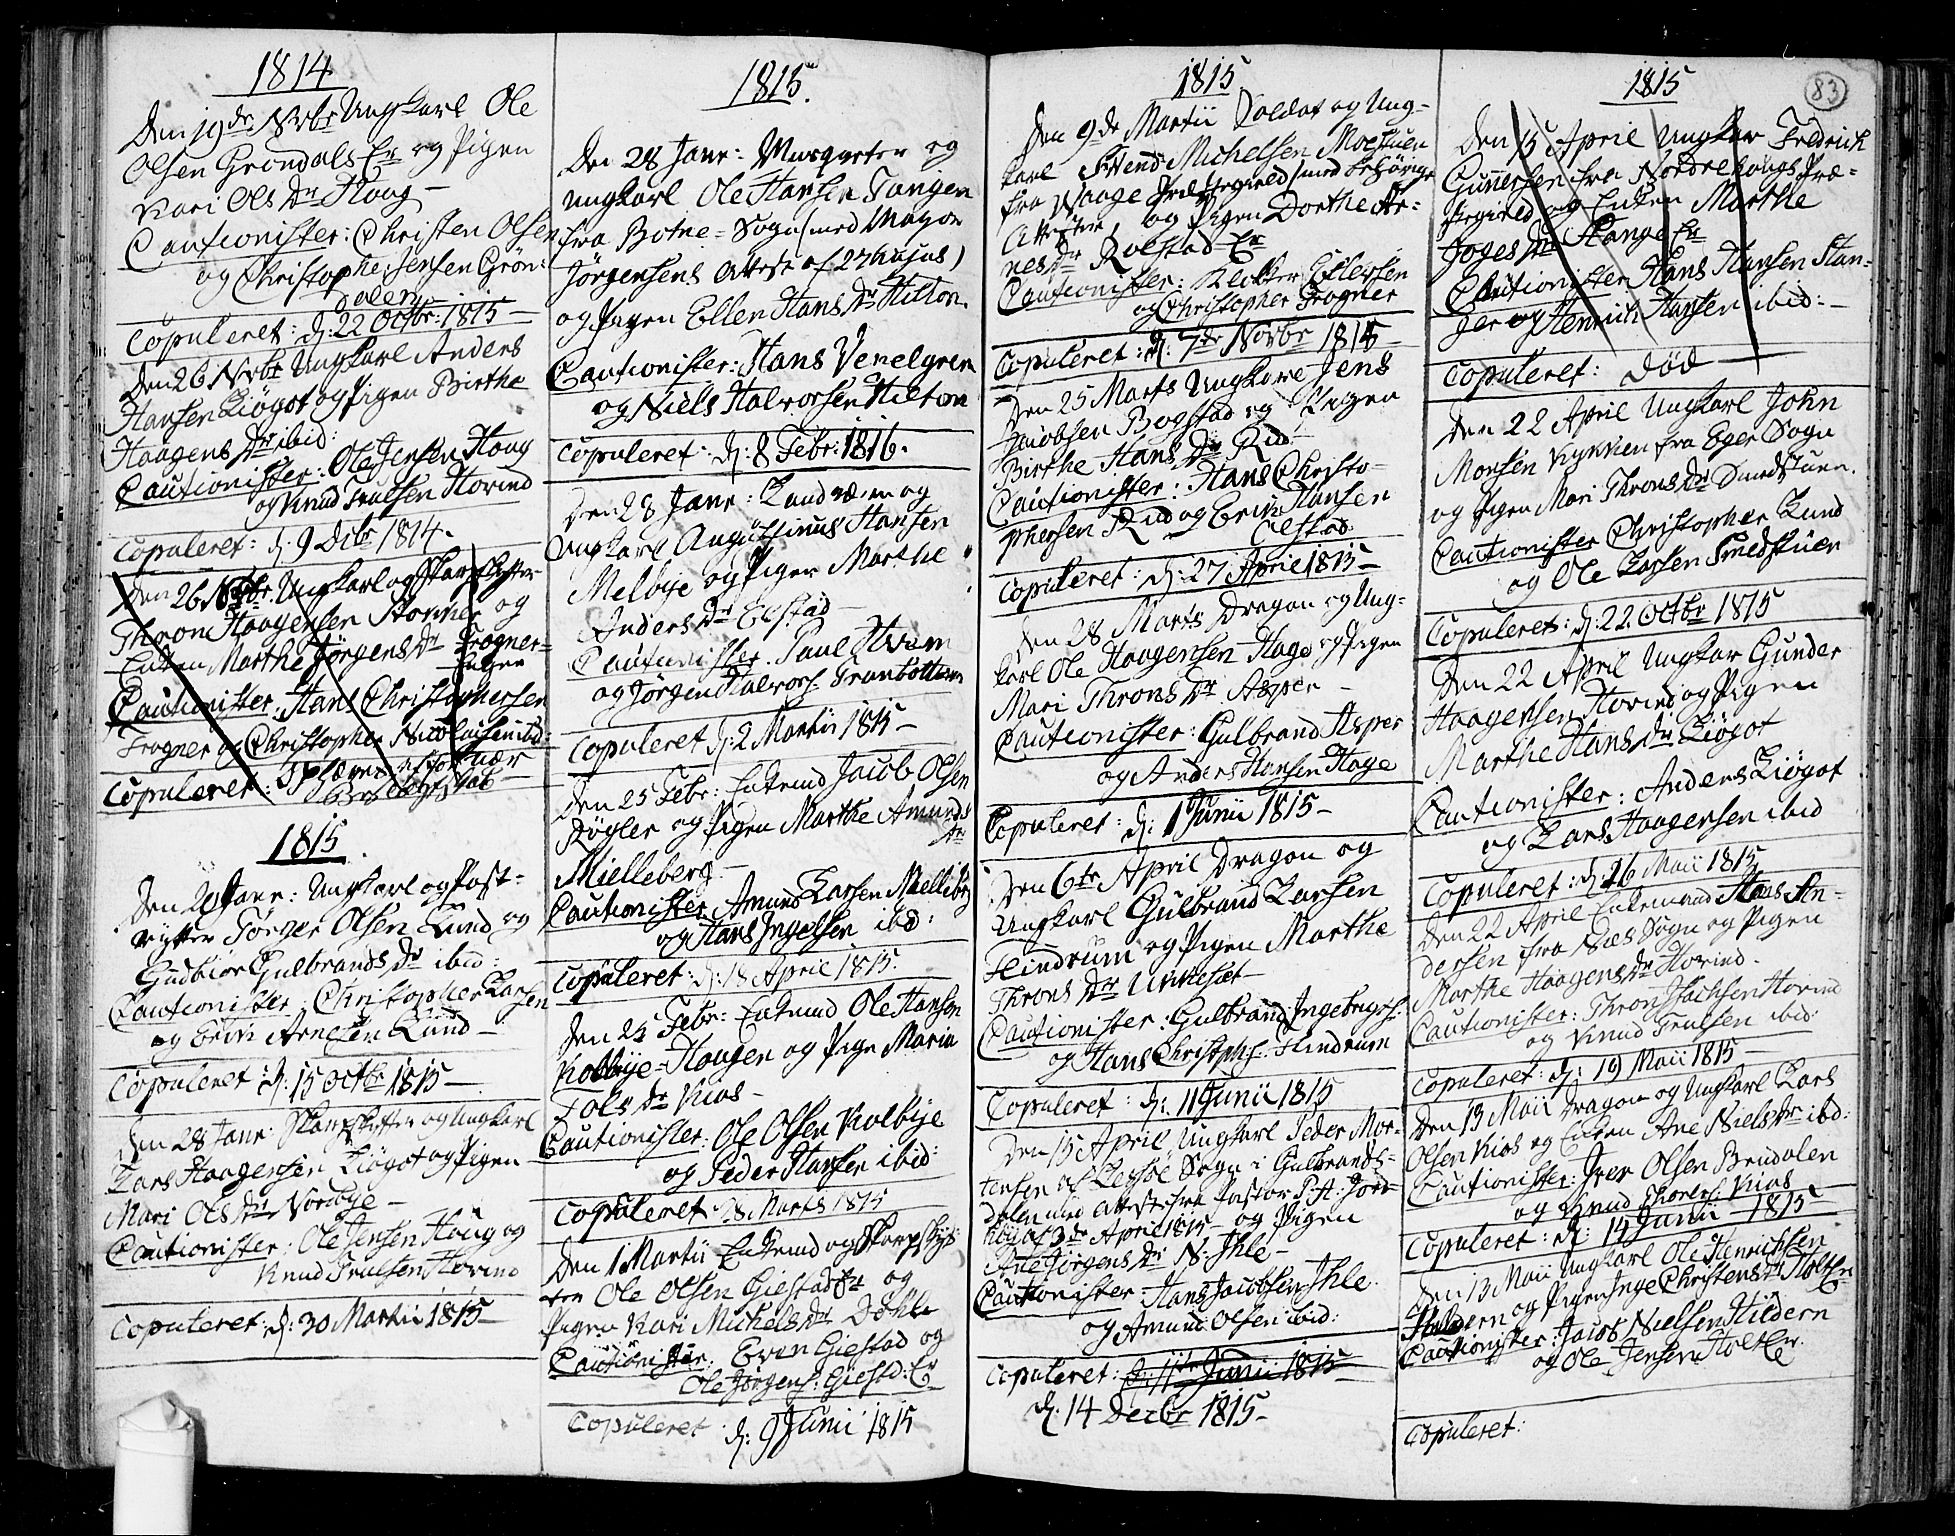 1814
Den 19de Novbr Ungkarl Ole
Olsen Grøndals Er og Pigen
Kari Ols Dr Haag -
Cautionister: Christen Olsen
og Christopher Jensen Grøn-
dalen
Copuleret: d: 22 Octbr: 1815 -
Den 26 Novbr Ungkarl Anders
Hansen Kiøgot og Pigen Birthe
Haagens Dr ibid:
Cautionister: Ole Jensen Haag
og Knud Trulsen Hovind
Copuleret: d: 9 Decbr 1814.
Den 26 Novbr. Ungkarl og Skarpskytter
Thron Haagensen og
Enken Marthe Jørgens Dr Frogner-
Cautionister: Hans Christophersen
Frogner og Christopher Nicolaisen ibid:
Copuleret:
1815
Den 20 Janr: Ungkarl og Post-
rytter Jørgen Olsen Lund og
Gudbior Gulbrands Dr ibid:
Cautionister: Christopher Larsen
og Erik Arnesen Lund -
Copuleret: d: 15 Octbr 1815 -
Den 28 Janr: Skarpskytter og Ungkarl
Lars Haagensen Kiøgot og Pigen
Mari Ols Dr Nordbye -
Cautionister: Ole Jensen Haug og
Knud Trulsen Hovind
Copuleret: d: 30 Martii 1815 -
1815.
Den 28 Janr: Musqueter og
Ungkarl Ole Hansen Tangen
fra Botne = Sogn (med Mayor
Jørgensens Attest af 27 hujus)
og Pigen Ellen Hans Dr Hilton
Cautionister: Hans Venelgren
og Niels Halvorsen Hilton
Copuleret: d: 8 Febr: 1816.
Den 28 Janr: Landværn og
Ungkarl Augustinus Hansen
Melbye og Pigen Marthe
Anders Dr Elstad -
Cautionister: Paul Hvam
og Jørgen Halvors: Tranbotten
Copuleret d: 2 Martii 1815 -
Den 25 Febr: Enkemd Jacob Olsen
Røgler og Pigen Marthe Amunds
Dr
Mielleberg -
Cautionister Amund Larsen Mielleberg
og Hans Ingelsen ibid:
Copuleret: d: 18 April 1815.
Den 25 Febr: Enkemd Ole Hansen
Kolbye = Haagen og Pige Maria
Ols Dr Kios -
Cautionister: Ole Olsen Kolbye
og Peder Hansen ibid:
Copuleret 28 Marts 1815
Den 1 Martii Enkemd og Skarpskyt-
ter Ole Olsen Giestad Er og
Pigen Kari Michels Dr Døhle
Cautionister: Even Giestad og
Ole Jørgens: Giestd: Er
Copuleret d: 9 Junii 1815
1815
Den 9de Martii Soldat og Ung-
karl Svend Michelsen Moestuen
fra Waage Præstegield (med behørige
Attester, og Pigen Dorthe Ar-
nes Dr Rolstad Er
Cautionister: Klokker Ellefsen
og Christopher Frogner
Copuleret: d: 7de Novbr 1815 -
Den 25 Marts Ungkarl Jens
Jacobsen Bogstad og Pigen
Birthe Hans Dr Riid -
Cautionister: Hans Christo-
phersen Riid og Erik Hansen
Elestad
Copuleret: d: 27 April 1815 -
Den 28 Marts Dragon og Ung-
karl Ole Haagensen Hage og Pigen
Mari Throns Dr Asper -
Cautionister: Gulbrand Asper
og Anders Hansen Hage
Copuleret: d: 1 Junii 1815 -
Den 6te April Dragon og
Ungkarl Gulbrand Larsen
Hindrum og Pigen Marthe
Throns Dr
Cautionister: Gulbrand Ingebrigts:
og Hans Christoph: Hindrum
Copuleret: d: 11 Junii 1815
Den 15 April Ungkarl Peder Mor-
tensen af Lessøe Sogn i Gulbrands-
dalen med Attest fra Pastor P. A:
af 3de April 1815 - og Pigen
Jørgens Dr N: Ihle -
Cautionister Hans Jacobsen Ihle
og Amund Olsen ibid:
Copuleret: d: 11te Junii 1815
d: 14 Decbr 1815 -
83
1815
Den 15 April Ungkar Fredrich
Gunersen fra Nordrehougs Præ-
stegield og Enken Marthe
Joges Dr Stange Er
Cautionister Hans Hansen Stan-
ger og Henrich Hansen ibid: -
Copuleret: Død -
Den 22 April Ungkarl John
Monsen Kykken fra Eger Sogn
og Pigen Mari Throns Dr Smedstuen.
Cautionister Christopher Lund
og Ole Larsen Smedstuen
Copuleret: d: 22 Octbr 1815
Den 22 April Ungkar Gunder
Haagensen Hovind og Pigen
Marthe Hans Dr Kiøgot
Cautionister: Anders Kiøgot
og Lars Haagensen ibid
Copuleret: d: 26 Maii 1815
Den 22 April Enkemand Hans An-
dersen fra Næs Sogn og Pigen
Marthe Haagens Dr Hovind.
Cautionister: Thron Isachsen Hovind
og Knud Trulsen ibid:
Copuleret: d: 19 Maii 1815 -
Den 13 Maii Dragon og Ungkarl Lars
Olsen Kios og Enken Ane Niels Dr ibid:
Cautionister: Iver Olsen Brudalen
og Knud Kios
Copuleret: d: 14 Junii 1815
Den 13 Maii Ungkarl Ole Henrichsen
Hildern og Pigen Inge Christens Dr Holt Er
Cautionister: Jacob Nielsen Hildern
og Ole Jensen Holt Er.
Copuleret: